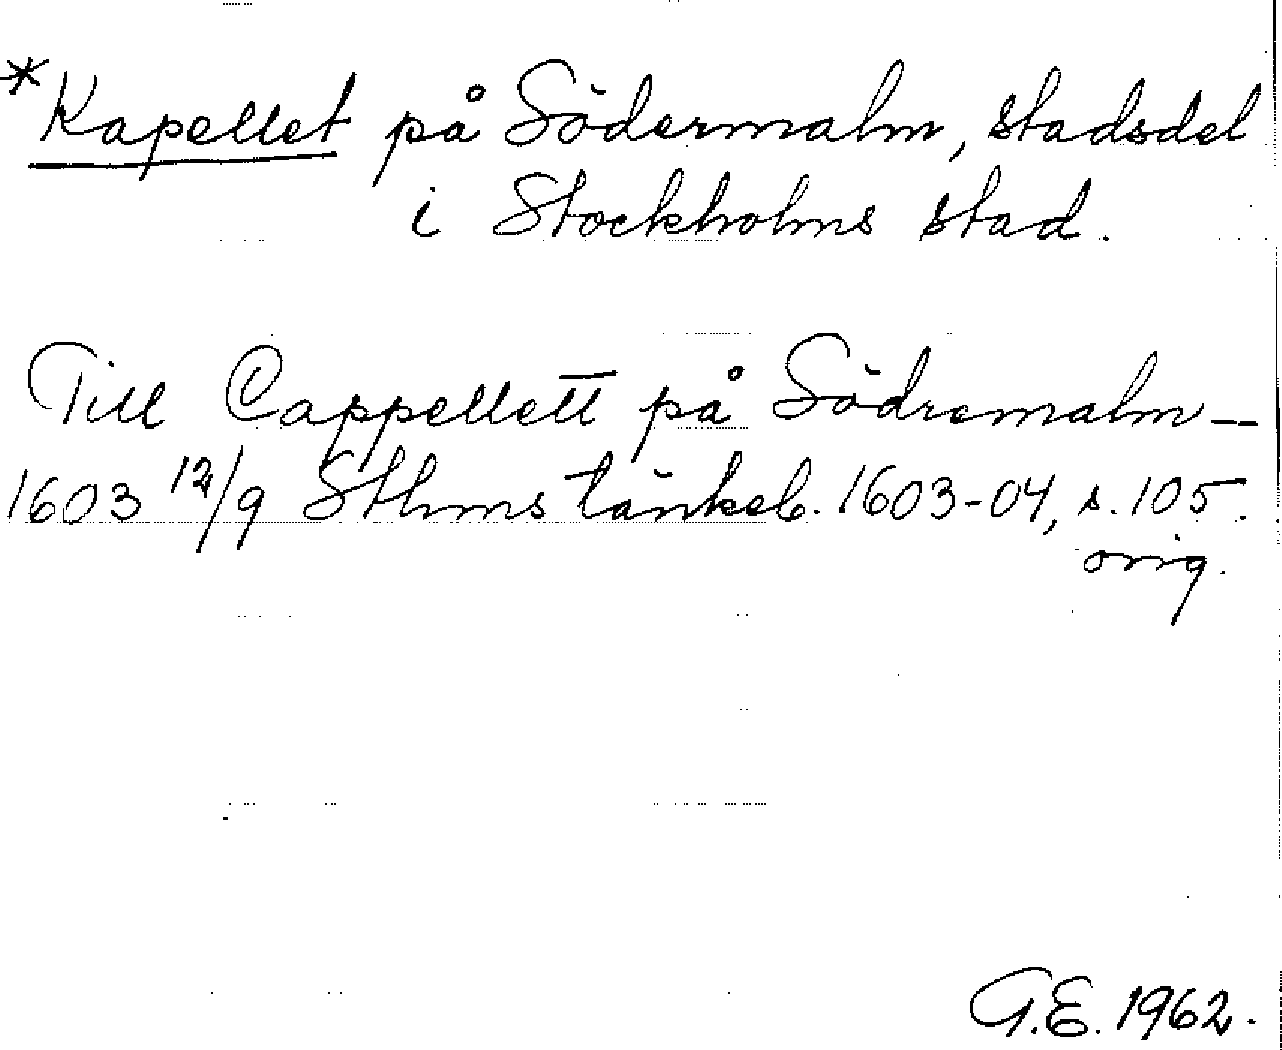 *Kapellet på Södermalm, stadsdel
i Stockholms stad.
Till Cappellett på Södremalm—
1603 12/9 Sthms tänkeb. 1603-04, s. 105.
orig.
G.E. 1962.